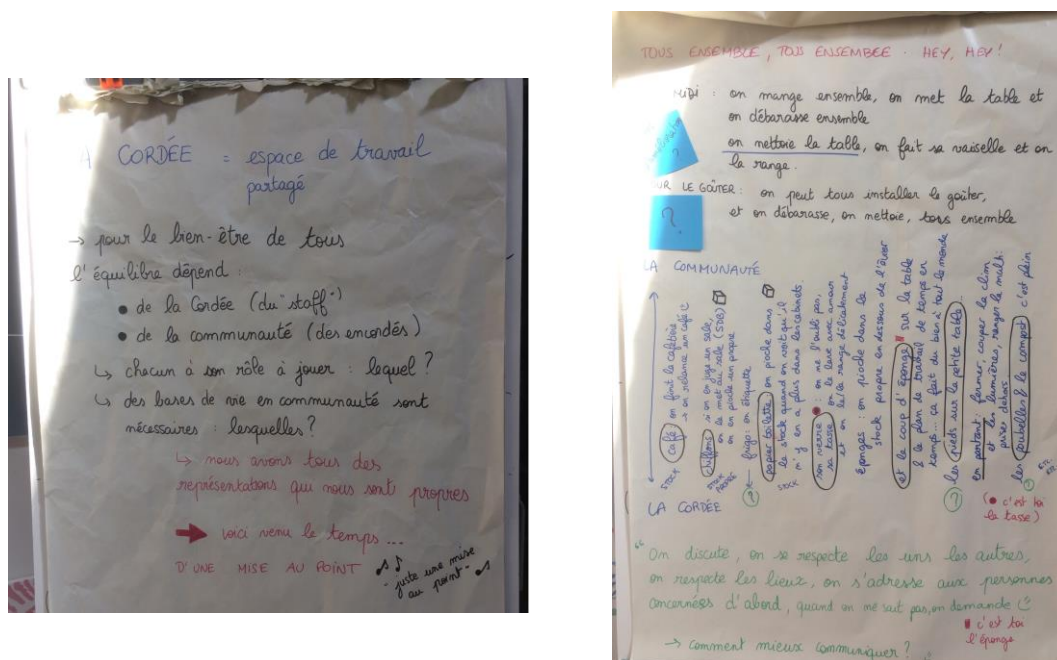 CORDÉE = espace de travail
partagé
→ pour le bien-être de tous
l'équilibre dépend :
● de la Cordée (du "staff")
● de la communauté (des encordés)
↳ chacun à son rôle à jouer : lequel ?
↳ des bases de vie en communauté sont
nécessaires : lesquelles ?
↳ nous avons tous des
représentations qui nous sont propres
➡ voici venu le temps ...
D'UNE MISE AU POINT
juste une mise
au point -
TOUS ENSEMBLE, TOUS ENSEMBLE - HEY, HEY !
MIDI : on mange ensemble, on met la table et
on débarasse ensemble
on nettoie la table, on fait sa vaisselle et on
la range.
?
LE GOÛTER : on peut tous installer le goûter,
et on débarasse, on nettoie, tous ensemble
?
LA COMMUNAUTÉ
café on finit la cafetière
→ on relance un café !!
STOCK
chiffons si on en juge un sale,
on le met au sale (SDB)
on en pioche un propre
STOCK PROPRE
frigo : on étiquette
?
papier toilette on pioche dans
le stock quand on voit qu'il
n'y en a plus dans les cabinets
STOCK
son verre ● : on ne l'oublie pas,
sa tasse on le lave avec amour
et on le/la range délicatement
éponges : on pioche dans le
stock propre en dessous de l'évier
et le coup d'éponge sur la table
& le plan de travail de temps en
temps... ça fait du bien à tout le monde
les pieds sur la petite table
?
en partant : fermer, couper la clim
et les lumières, ranger la multi
prises dehors
les poubelles & le compost c'est plein
ETC.
LA CORDÉE
(● c'est toi
la tasse)
"On discute, on se respecte les uns les autres,
on respecte les lieux, on s'adresse aux personnes
concernées d'abord, quand on ne sait pas, on demande
c'est toi
l'éponge
→ comment mieux communiquer ?